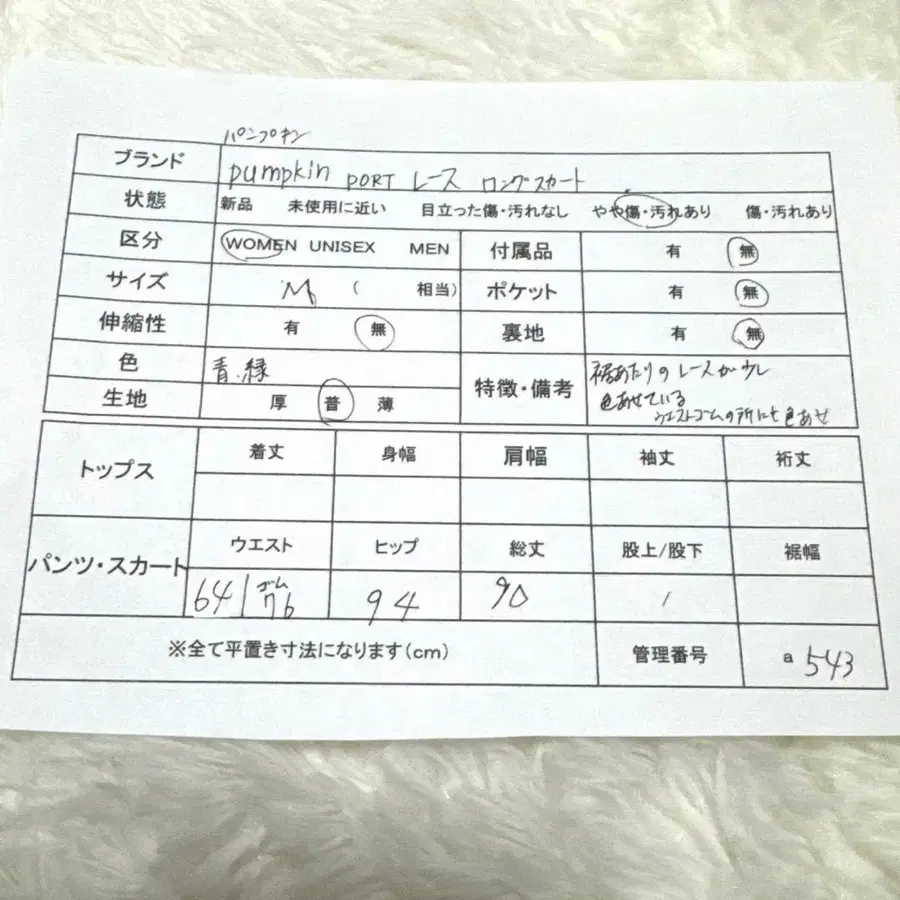 パンプキン
ブランド pumpkin PORT レース ロングスカート
状態 新品 未使用に近い 目立った傷・汚れなし やや傷・汚れあり 傷・汚れあり
区分 WOMEN UNISEX MEN 付属品 有 無
サイズ M ( 相当) ポケット 有 無
伸縮性 有 無 裏地 有 無
色 青.緑 特徴・備考 裾あたりのレースが少し
色あせている
ウエストゴムの所にも色あせ
生地 厚 普 薄
トップス 着丈 身幅 肩幅 袖丈 裄丈
パンツ・スカート ウエスト ヒップ 総丈 股上/股下 裾幅
64/ゴム76 94 90 /
※全て平置き寸法になります(cm) 管理番号 a 543